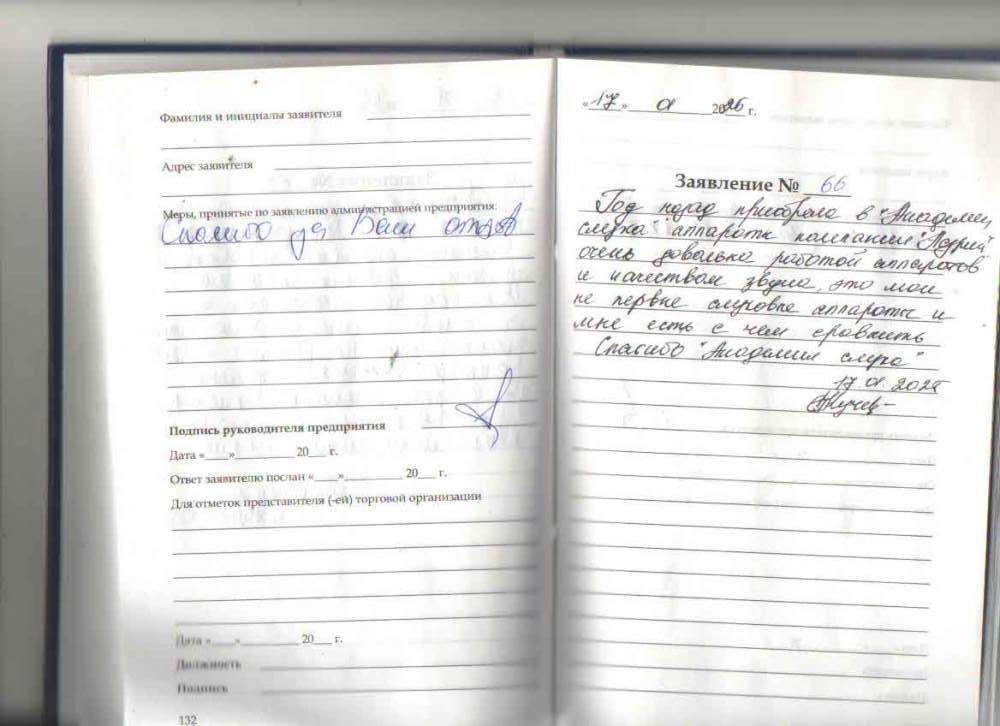 Фамилия и инициалы заявителя
Адрес заявителя
Меры, принятые по заявлению администрацией предприятия:
Спасибо за Ваш отзыв
Подпись руководителя предприятия
Дата «____»__________ 20___ г.
Ответ заявителю послан «____»__________ 20___ г.
Для отметок представителя (-ей) торговой организации
Дата «____»__________ 20___ г.
Должность
Подпись
132
«17» 01 2025 г.
Заявление № 66
Год назад приобрела в "Академии
слуха" аппараты компании
очень довольна работой аппаратов
и качеством звука, это мои
не первые слуховые аппараты и
мне есть с чем сравнить
Спасибо "Академия слуха"
17.01.2025